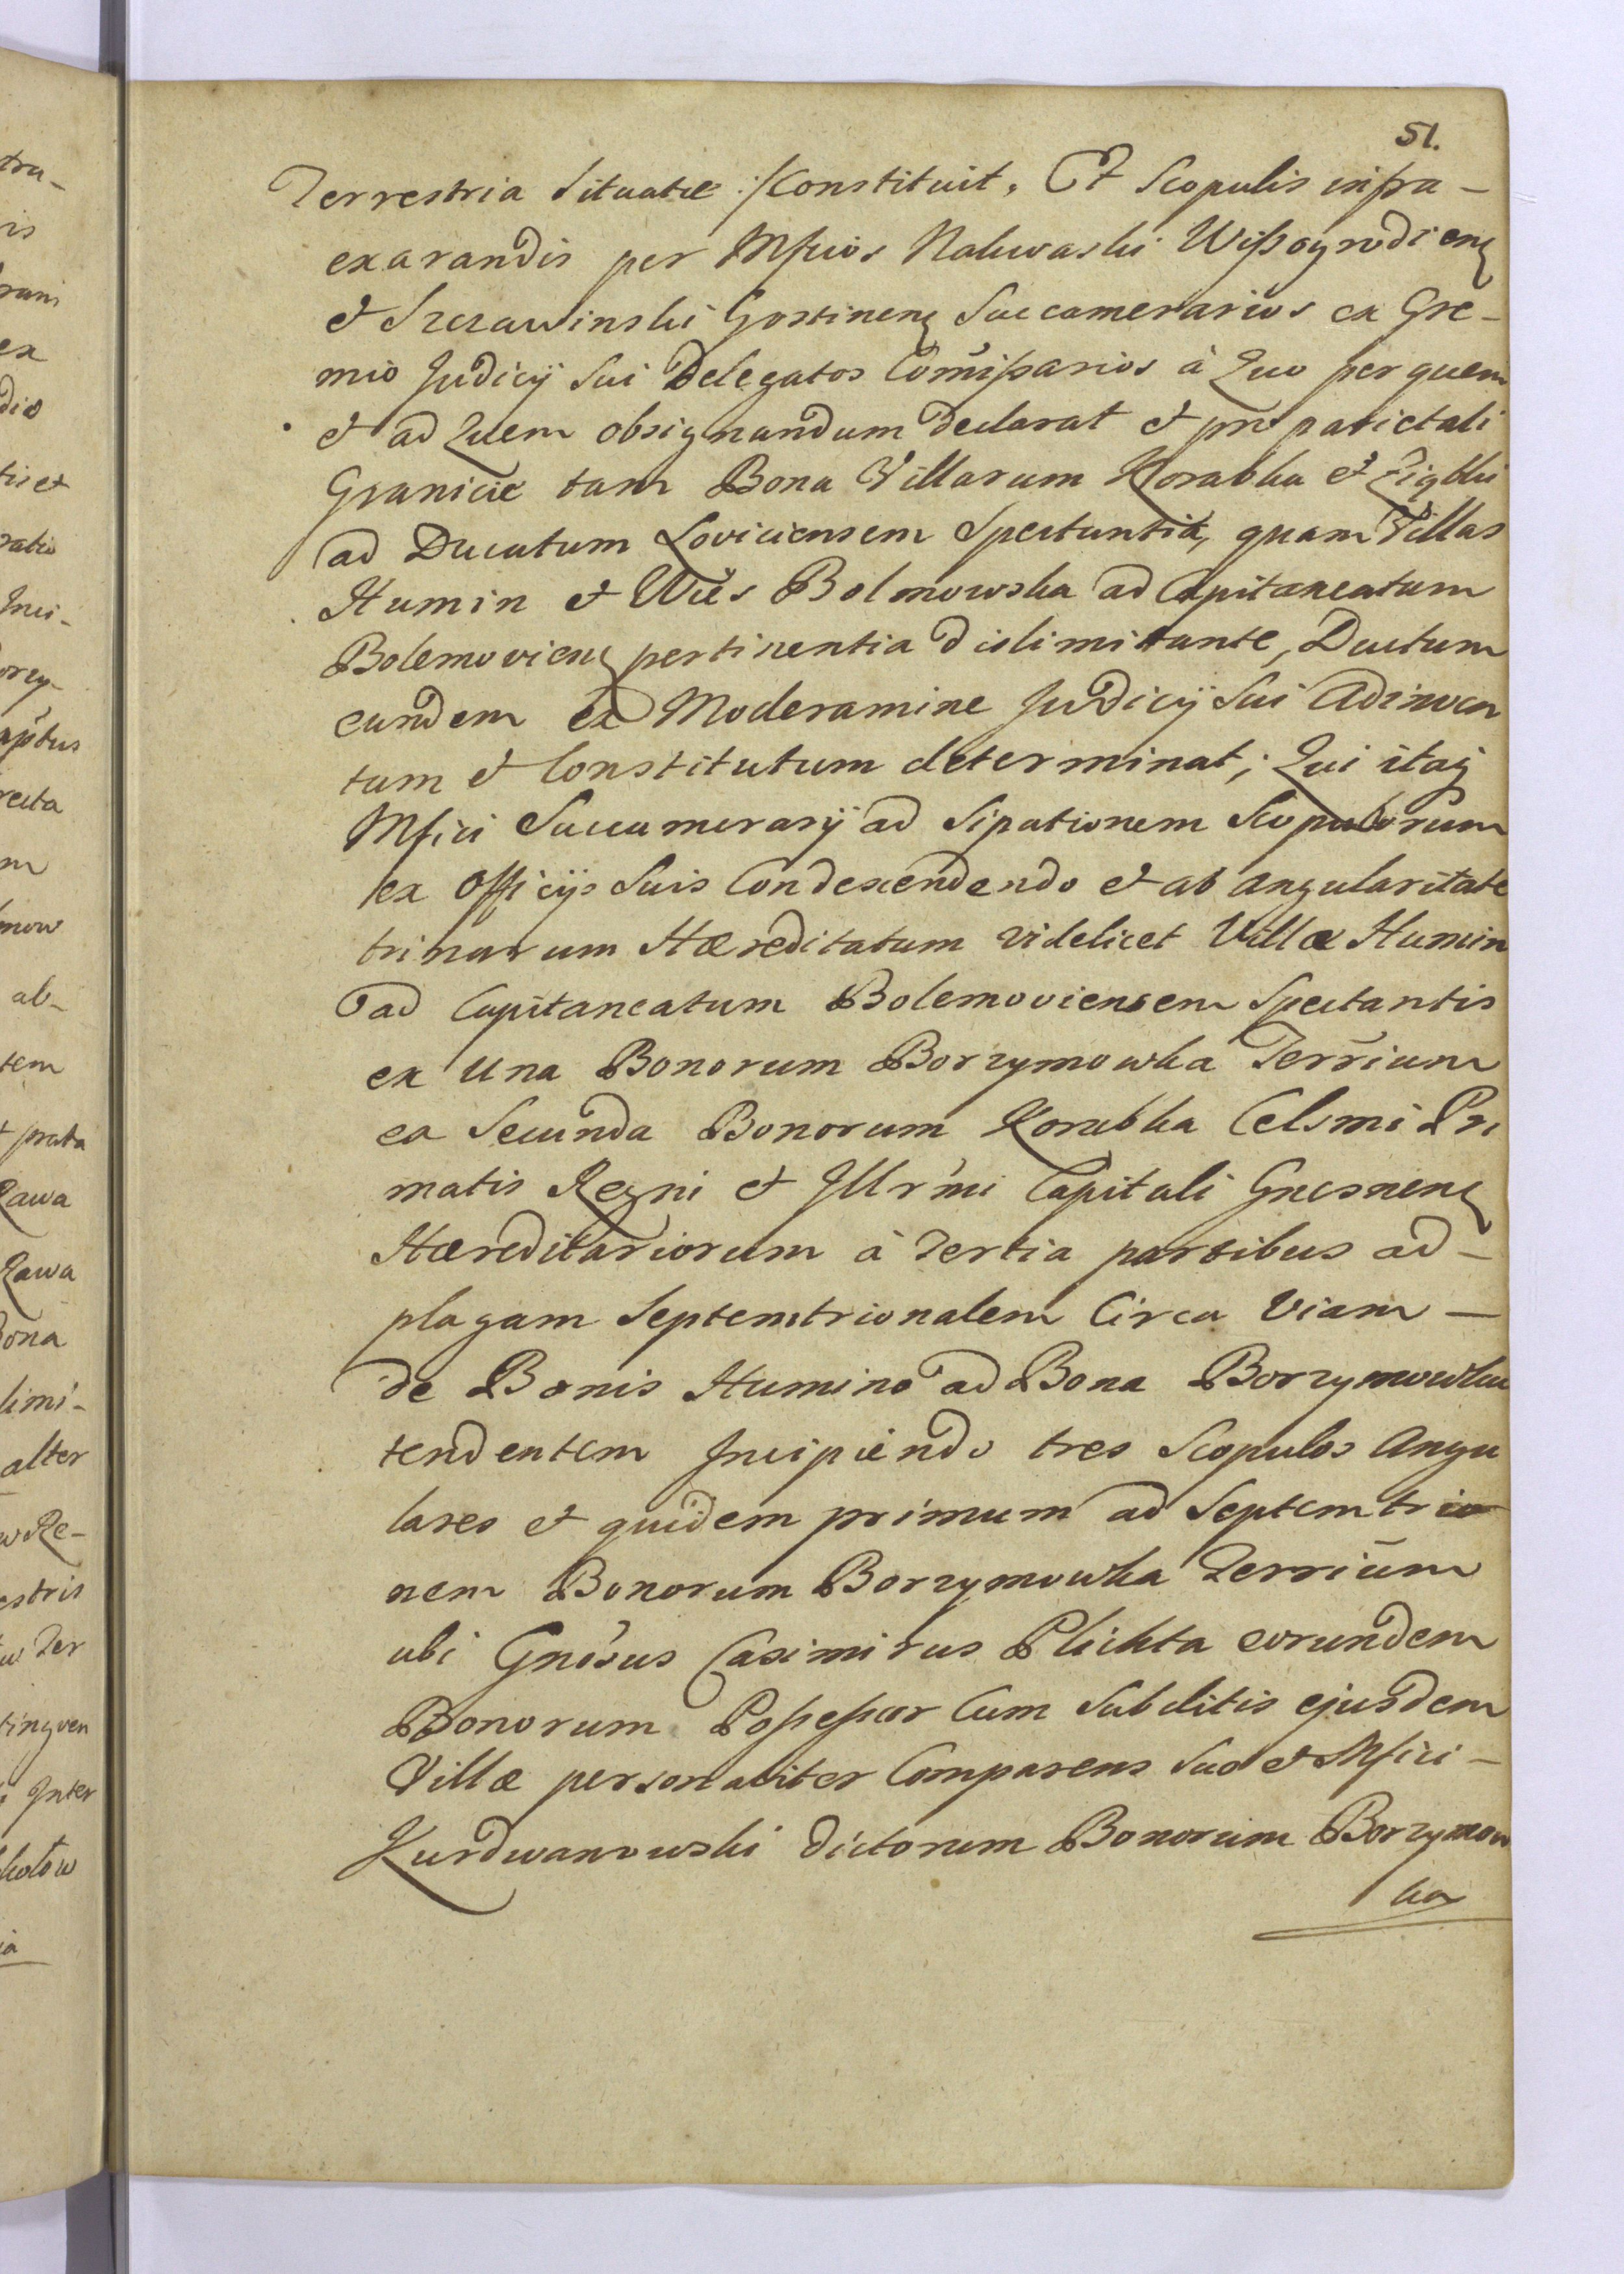 51.
Terrestria Situatæ :/ Constituit, Et Scopulis infra-
exarandis per Mficos Nakwaski Wißogrodiens
et Szczawinski Gostinens Succamerarios ex Gre-
mio Judicij Sui Delegatos Comißarios à Quo per quem
et ad Quem obsignandum declarat et pro parietali
Granicie tam Bona Villarum Korabka et Zigbki
ad Ducatum Loviciensem Spectantia, quam Villas
Humin et Wies Bolmowska ad Capitaneatum
Bolemoviens pertinentia dislimitante, Ductum
eundem ex Moderamine Judicij Sui Adinven
tum et Constitutum determinat; Qui itaq
Mfici Succamerarij ad Sipationem Scopulorum
ex Officijs Suis Condescendendo et ab angularitate
trinarum Hæreditatum videlicet Villæ Humin
ad Capitaneatum Bolemoviensem Spectantis
ex Una Bonorum Borzymowka Terrium
ex Secunda Bonorum Korabka Celsmi Pri
matis Regni et Illrmi Capituli Gnesnens
Hæreditariorum à Tertia partibus ad-
plagam Septemtrionalem Circa Viam -
de Bonis Humino ad Bona Borzymowka
tendentem Incipiendo tres Scopulos Angu
lares et quidem primum ad Septemtrio
nem Bonorum Borzymowka Terrium
ubi Gnosus Casimirus Plichta eorundem
Bonorum Poßeßor Cum Subditis ejusdem
Villæ personaliter Comparens Suo et Mfici -
Kurdwanowski dictorum Bonorum Borzymow
ka